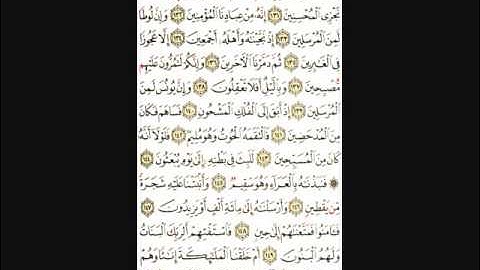 نَجْزِى ٱلْمُحْسِنِينَ ١٣١ إِنَّهُۥ مِنْ عِبَادِنَا ٱلْمُؤْمِنِينَ ١٣٢ وَإِنَّ لُوطًا
لَّمِنَ ٱلْمُرْسَلِينَ ١٣٣ إِذْ نَجَّيْنَٰهُ وَأَهْلَهُۥٓ أَجْمَعِينَ ١٣٤ إِلَّا عَجُوزًا
فِى ٱلْغَٰبِرِينَ ١٣٥ ثُمَّ دَمَّرْنَا ٱلْءَاخَرِينَ ١٣٦ وَإِنَّكُمْ لَتَمُرُّونَ عَلَيْهِم
مُّصْبِحِينَ ١٣٧ وَبِٱلَّيْلِ أَفَلَا تَعْقِلُونَ ١٣٨ وَإِنَّ يُونُسَ لَمِنَ
ٱلْمُرْسَلِينَ ١٣٩ إِذْ أَبَقَ إِلَى ٱلْفُلْكِ ٱلْمَشْحُونِ ١٤٠ فَسَاهَمَ فَكَانَ
مِنَ ٱلْمُدْحَضِينَ ١٤١ فَٱلْتَقَمَهُ ٱلْحُوتُ وَهُوَ مُلِيمٌ ١٤٢ فَلَوْلَآ أَنَّهُۥ
كَانَ مِنَ ٱلْمُسَبِّحِينَ ١٤٣ لَلَبِثَ فِى بَطْنِهِۦٓ إِلَىٰ يَوْمِ يُبْعَثُونَ ١٤٤
۞ فَنَبَذْنَٰهُ بِٱلْعَرَآءِ وَهُوَ سَقِيمٌ ١٤٥ وَأَنۢبَتْنَا عَلَيْهِ شَجَرَةً
مِّن يَقْطِينٍ ١٤٦ وَأَرْسَلْنَٰهُ إِلَىٰ مِا۟ئَةِ أَلْفٍ أَوْ يَزِيدُونَ ١٤٧
فَـَٔامَنُوا۟ فَمَتَّعْنَٰهُمْ إِلَىٰ حِينٍ ١٤٨ فَٱسْتَفْتِهِمْ أَلِرَبِّكَ ٱلْبَنَاتُ
وَلَهُمُ ٱلْبَنُونَ ١٤٩ أَمْ خَلَقْنَا ٱلْمَلَٰٓئِكَةَ إِنَٰثًا وَهُمْ